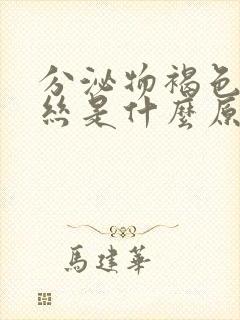 分泌物褐色
絲是什麼原
馬建華